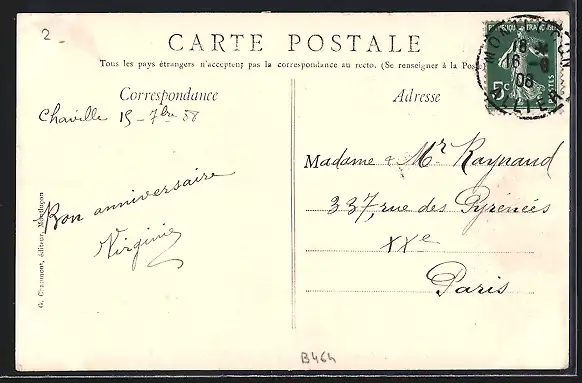 2
CARTE POSTALE
Tous les pays étrangers n'acceptent pas la correspondance au recto. (Se renseigner à la Poste
Correspondance
Adresse
Chaville 15 - 7bre 88
Bon anniversaire
Virginie
Madame & Mr Raynaud
337, rue des Pyrénées
XXe
Paris
G. Chaumont, éditeur, Montluçon
5c
POSTES
18
16 - 9
08
ALLIER
B464